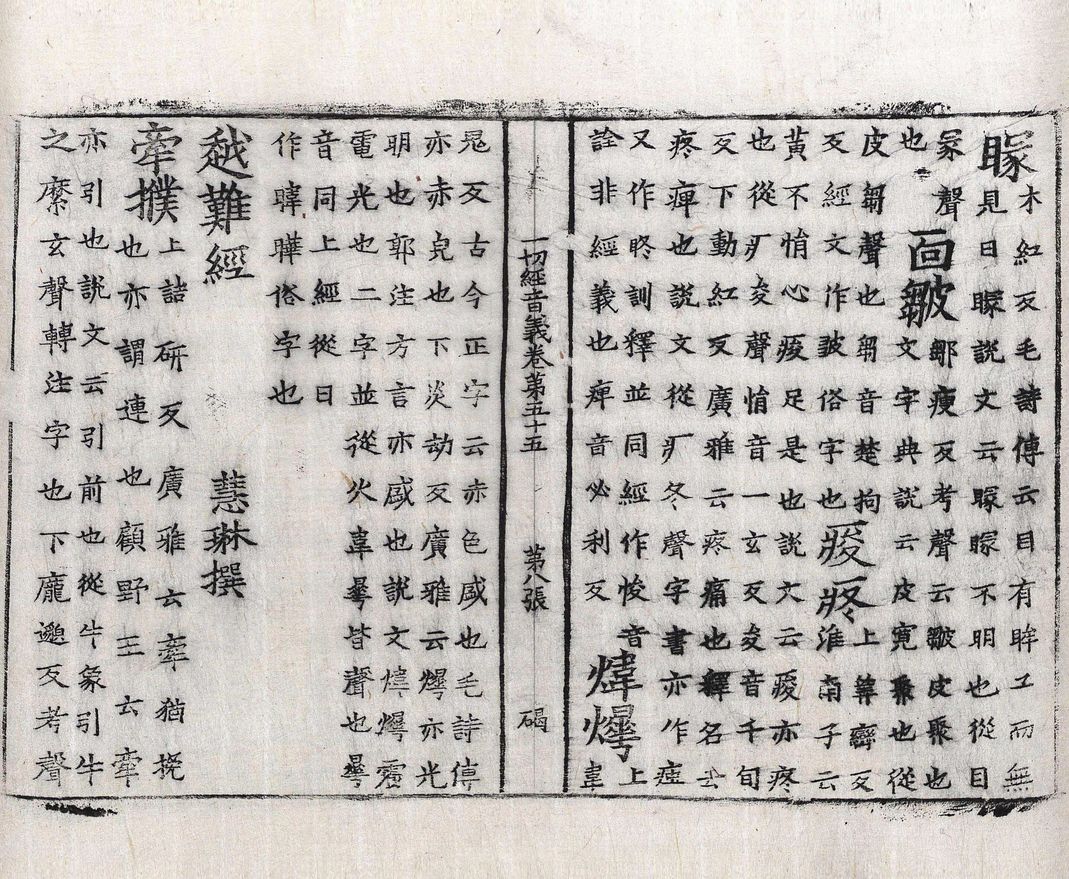 矇
木紅反毛詩傳云目有眸工而無
見曰矇說文云矇矇不明也從目
冡聲
也
面皺
鄒瘦反考聲云皺皮聚也
文字典說云皮寬聚也從
皮芻聲也芻音楚拘
反經文作皱俗字也
痠疼
上筭齊反
淮南子云
黃不悁心痠足是也說文云痠亦疼
也從疒夋聲悁音一玄反夋音千旬
反下動紅反廣雅云疼痛也釋名云
疼痺也說文從疒冬聲字書亦作痋
又作昸訓釋並同經作悛音
詮非經義也痺音必利反
煒爗
上
韋
一切經音義卷第五十五 第八張 碣
鬼反古今正字云赤色盛也毛詩傳
亦赤皃也下炎劫反廣雅云爗亦光
明也郭注方言亦盛也說文煒爗震
電光也二字並從火韋曅皆聲也曅
音同上經從日
作暐曄俗字也
越難經 慧琳撰
牽撲
上詰研反廣雅云牽猶挽
也亦謂連也顧野王云牽
亦引也說文云引前也從牛象引牛
之縻玄聲轉注字也下龐邈反考聲